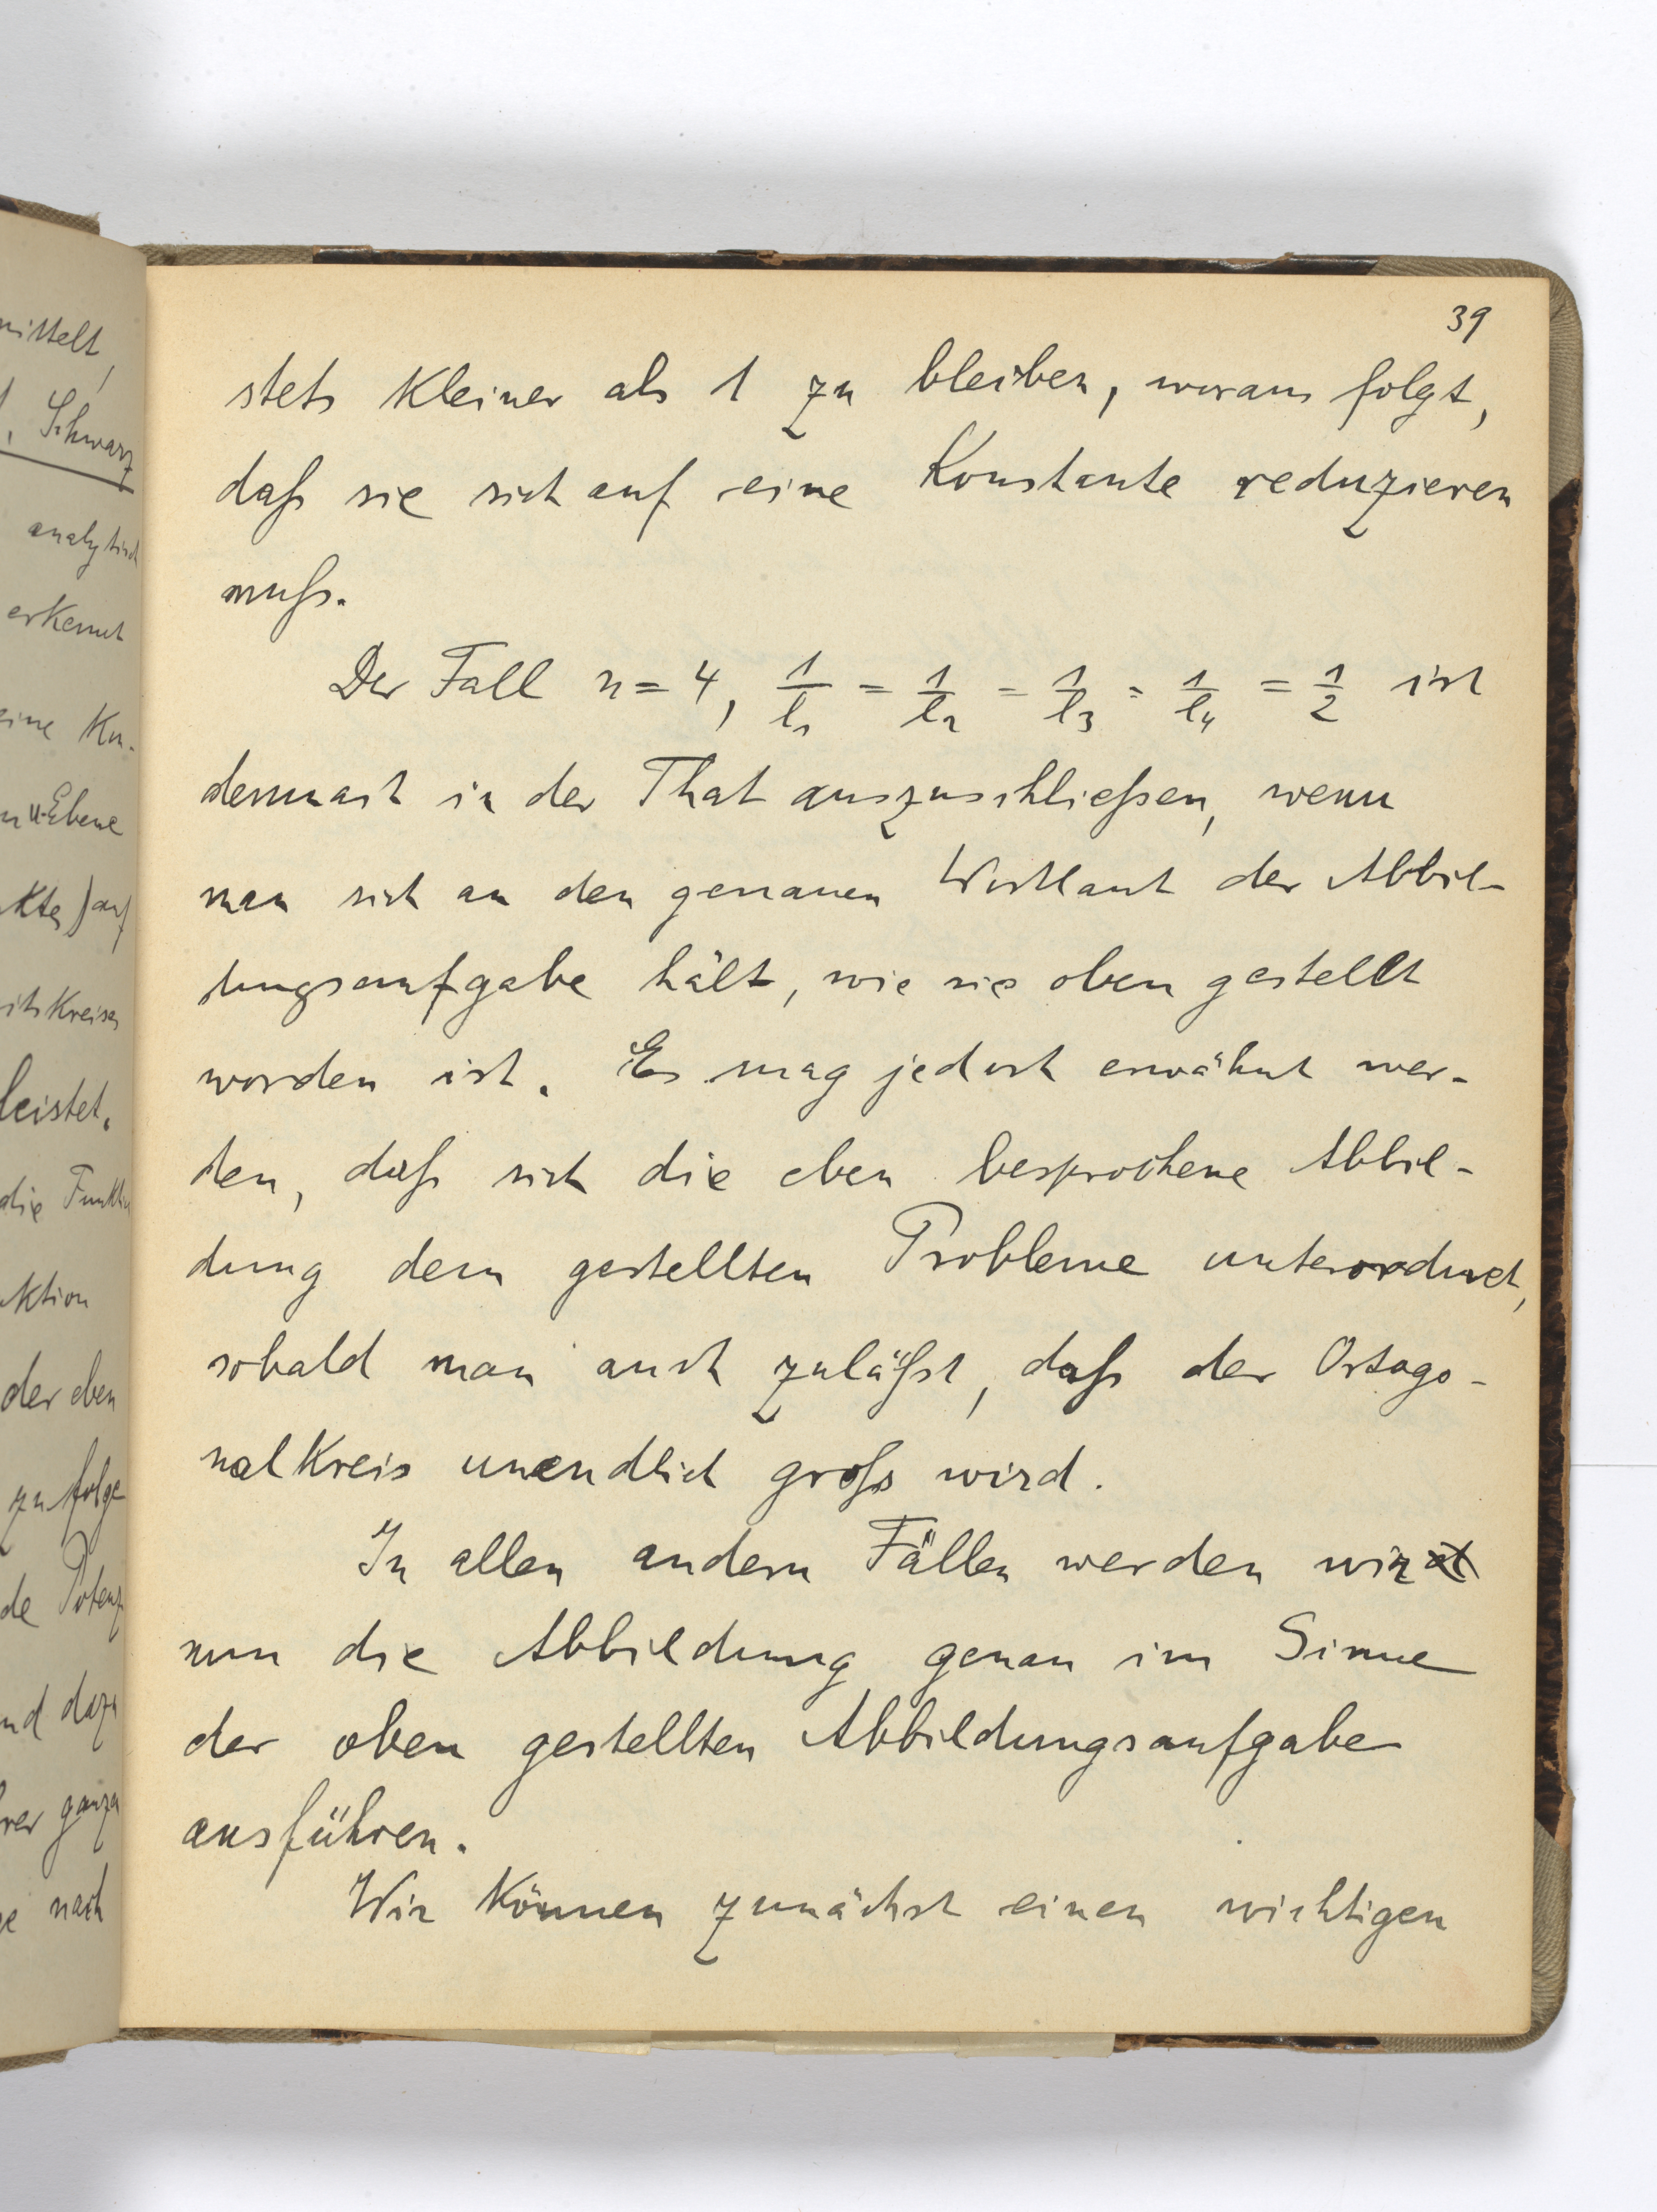 mittelt,
Schwarz
analytisch
erkennt
eine Ku-
u-Ebene
auf
Kreises
leistet.
die Funktion
ktion
der eben
zufolge
de Potenz
nd dazu
rer ganzen
ge nach
39
stets kleiner als 1 zu bleiben, woraus folgt,
daß sie sich auf eine Konstante reduzieren
muß.
Der Fall n = 4, 1/l₁ = 1/l₂ = 1/l₃ = 1/l₄ = 1/2 ist
demnach in der That auszuschließen, wenn
man sich an den genauen Wortlaut der Abbil-
dungsaufgabe hält, wie sie oben gestellt
worden ist. Es mag jedoch erwähnt wer-
den, daß sich die eben besprochene Abbil-
dung dem gestellten Probleme unterordnet,
sobald man auch zuläßt, daß der Ortogo-
nalkreis unendlich groß wird.
In allen andern Fällen werden wir
nun die Abbildung genau im Sinne
der oben gestellten Abbildungsaufgabe
ausführen.
Wir können zunächst einen wichtigen